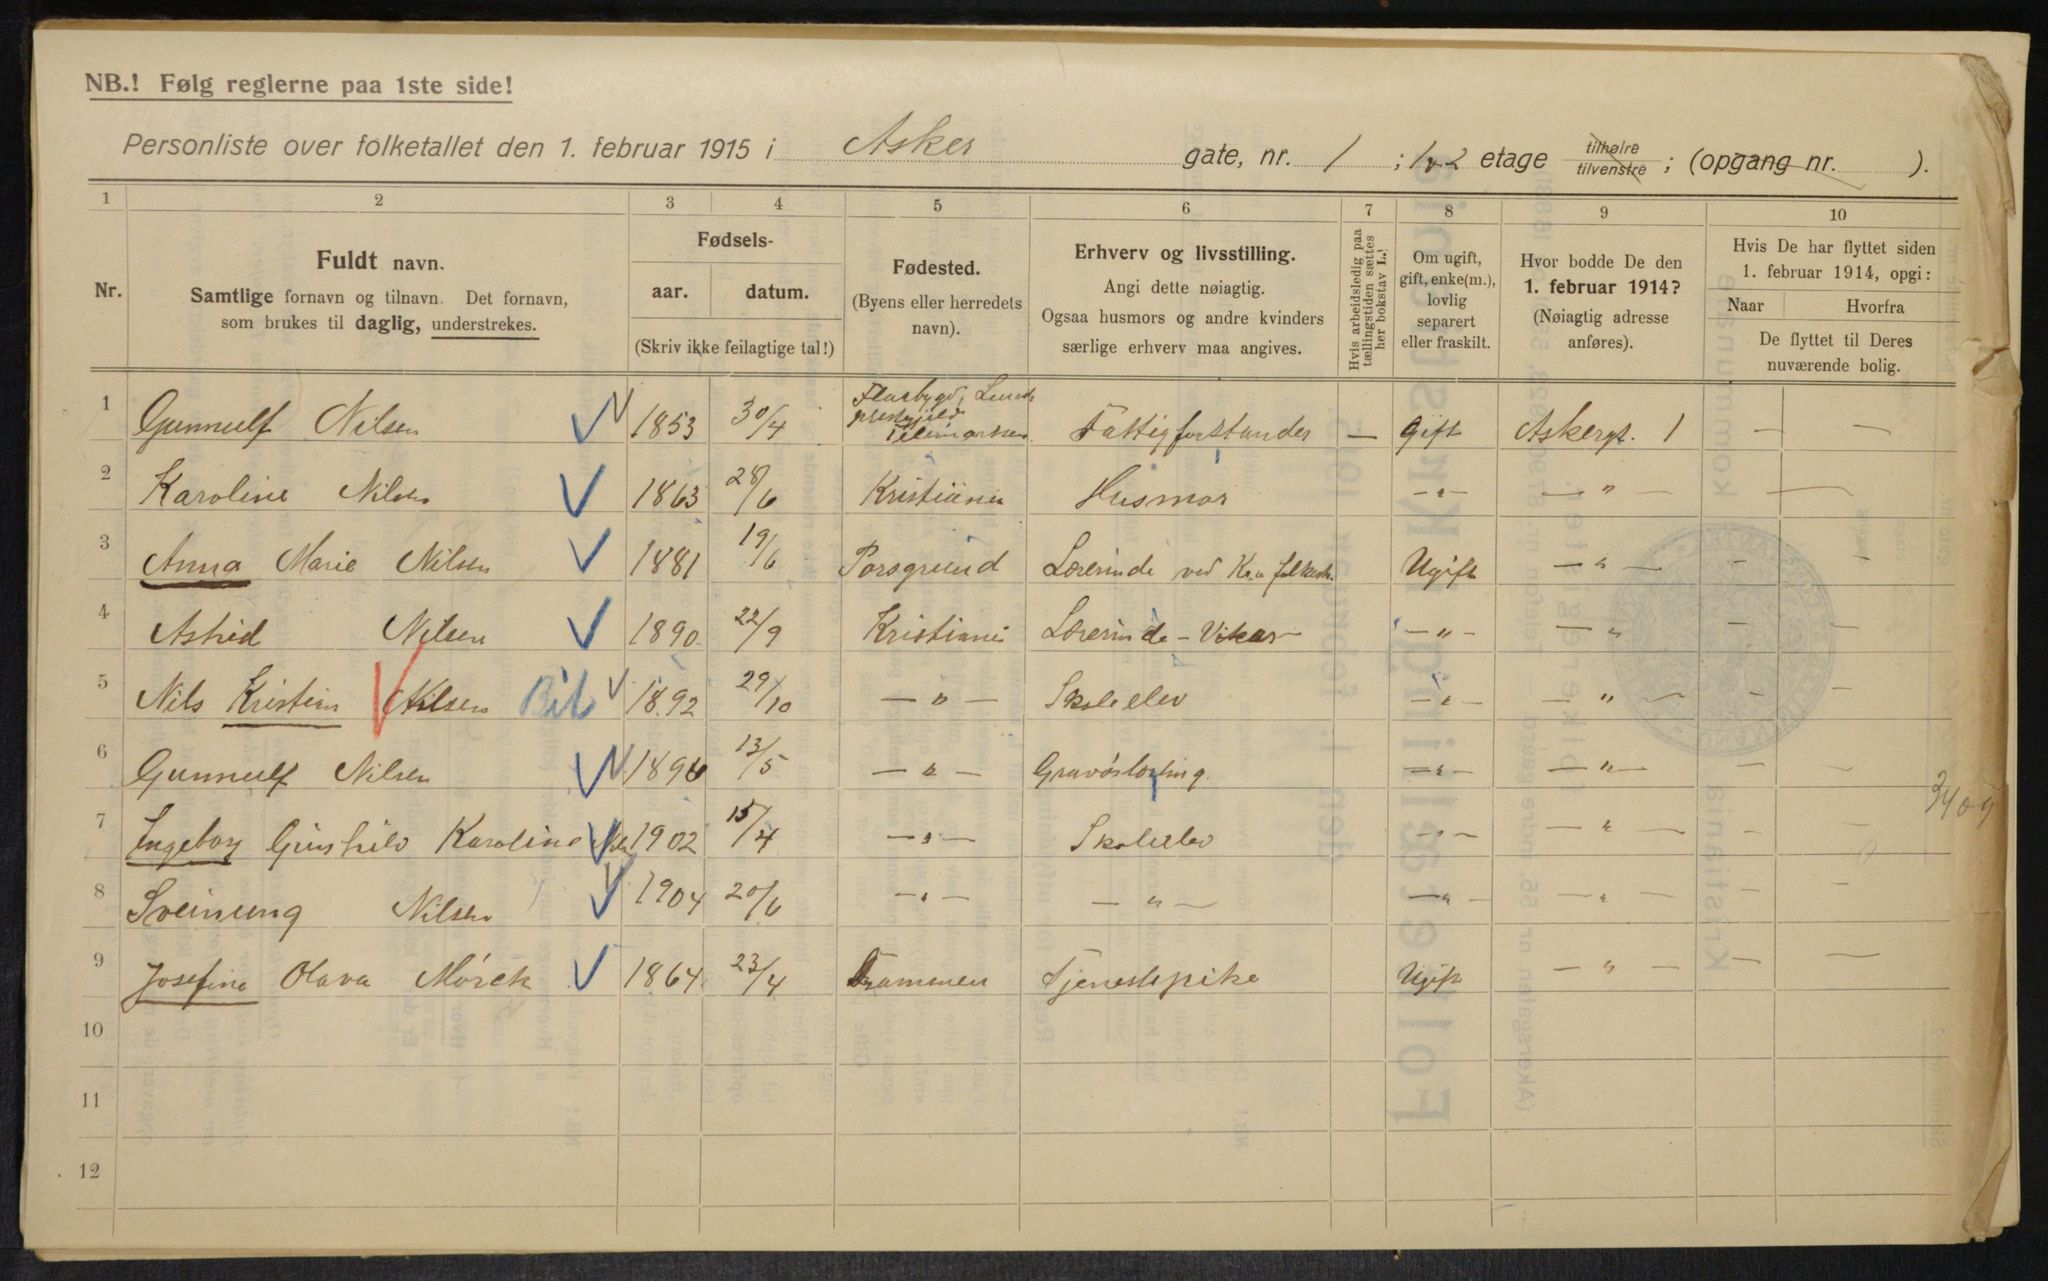 NB.! Følg reglerne paa 1ste side!
Personliste over folketallet den 1. februar 1915 i Asker gate, nr. 1 ; 1 2 etage tilhøire tilvenstre ; (opgang nr. ).
1 2 3 4 5 6 7 8 9 10
Nr.
Fuldt navn.
Samtlige fornavn og tilnavn. Det fornavn,
som brukes til daglig, understrekes.
Fødsels-
aar. datum.
(Skriv ikke feilagtige tal!)
Fødested.
(Byens eller herredets
navn).
Erhverv og livsstilling.
Angi dette nøiagtig.
Ogsaa husmors og andre kvinders
særlige erhverv maa angives.
Hvis arbeidsledig paa
tællingstiden sættes
her bokstav L.!
Om ugift,
gift, enke(m.),
lovlig
separert
eller fraskilt.
Hvor bodde De den
1. februar 1914?
(Nøiagtig adresse
anføres).
Hvis De har flyttet siden
1. februar 1914, opgi:
Naar Hvorfra
De flyttet til Deres
nuværende bolig.
1 Gunnulf Nilsen 1853 30/4 Telemarken Fattigforstander — Gift Askergt. 1 — —
2 Karoline Nilsen 1863 28/6 Kristiania Husmor —"— —"— —
3 Anna Marie Nilsen 1881 19/6 Porsgrund Lærerinde ved Kr.a folkesk. Ugift —"— — —
4 Astrid Nilsen 1890 22/9 Kristiania Lærerinde - Vikar —"— —"— — —
5 Nils Kristian Nilsen 1892 29/10 —"— Skoleelev —"— —"— — —
6 Gunnulf Nilsen 1896 13/5 —"— Gravørlærling —"— —"— — —
3409
7 Ingeborg Gunhild Karoline Nils 1902 15/4 —"— Skoleelev —"— —"— — —
8 Sveinung Nilsen 1904 20/6 —"— —"— —"— —"— — —
9 Josefine Olava Mørch 1864 23/4 Drammen Tjenestepike Ugift —"— — —
10
11
12